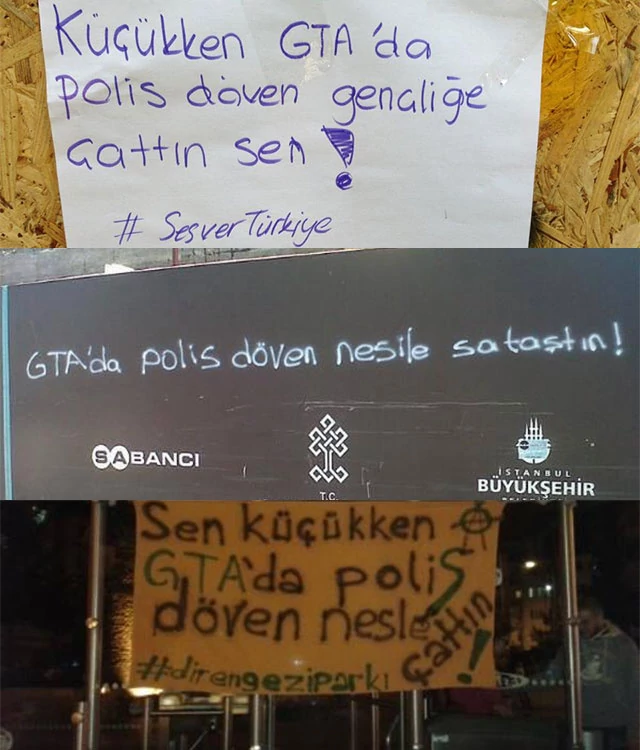 Küçükken GTA'da
polis döven gençliğe
çattın sen!
# SesverTürkiye
GTA'da polis döven nesile sataştın!
SABANCI
T.C.
İSTANBUL
BÜYÜKŞEHİR
Sen küçükken
GTA'da polis
döven nesle
çattın!
#direngeziparkı